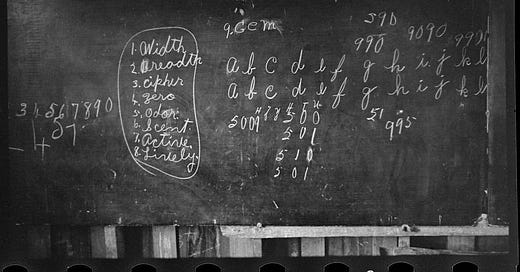 1. Width
2. Breadth
3. Cipher
4. Zero
5. Odor
6. Scent
7. Active
8. Lively
9. Gem
590
990 9090 9901
a b c d e f g h i j k l
a b c d e f g h i j k l
34567890
5009
500
501
510
501
51
995